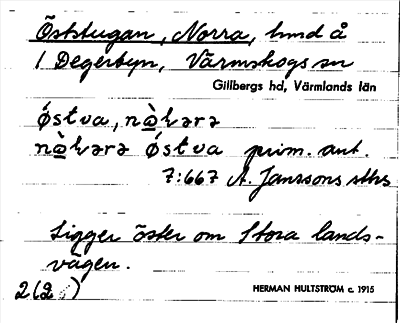 Öststugan, Norra, hmd å
1 Degerbyn, Värmskogs sn
Gillbergs hd, Värmlands län
ǿstva, nò̱kərə
nò̱kərə ǿstva prim. ant.
7:667 A. Janssons sths
Ligger öster om Stora lands-
vägen.
2(2)
HERMAN HULTSTRÖM c. 1915